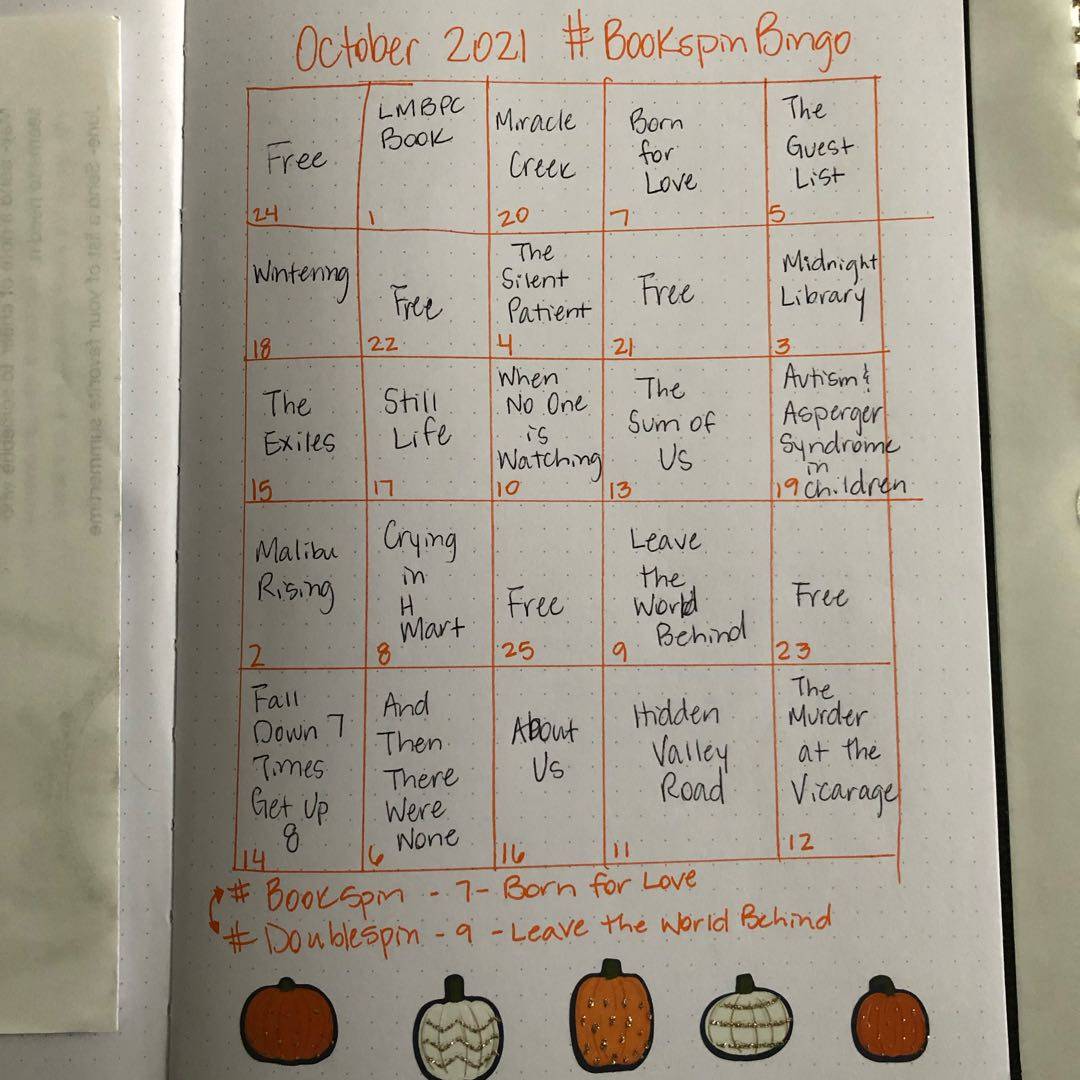 October 2021 #BookspinBingo
Free
24
LMBPC
Book
1
Miracle
Creek
20
Born
for
Love
7
The
Guest
List
5
Wintering
18
Free
22
The
Silent
Patient
4
Free
21
Midnight
Library
3
The
Exiles
15
Still
Life
17
When
No One
is
Watching
10
The
Sum of
Us
13
Autism &
Asperger
Syndrome
in
19 Children
Malibu
Rising
2
Crying
in
H
Mart
8
Free
25
Leave
the
World
Behind
9
Free
23
Fall
Down 7
Times
Get Up
8
14
And
Then
There
Were
None
6
About
Us
16
Hidden
Valley
Road
11
The
Murder
at the
Vicarage
12
# Bookspin - 7 - Born for Love
# Doublespin - 9 - Leave the World Behind